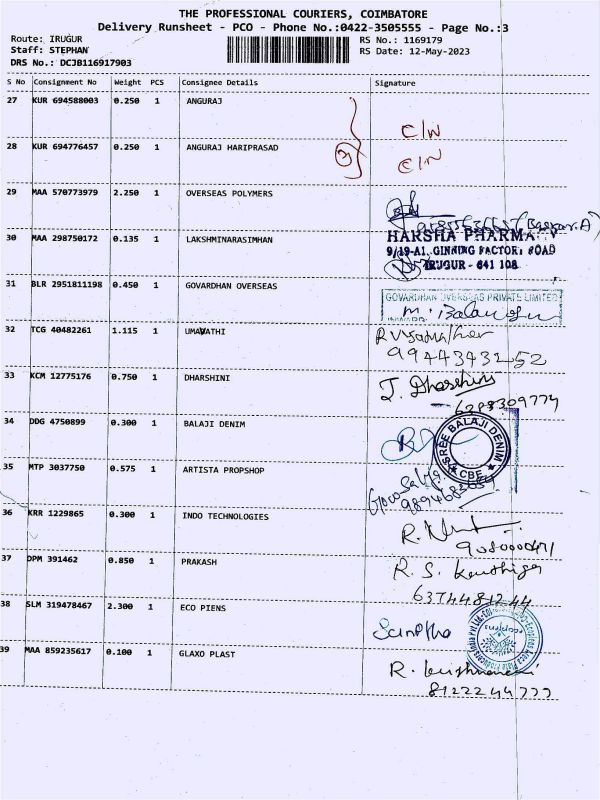 THE PROFESSIONAL COURIERS, COIMBATORE
Delivery Runsheet - PCO - Phone No.:0422-3505555 - Page No.:3
Route: IRUGUR RS No.: 1169179
Staff: STEPHAN RS Date: 12-May-2023
DRS No.: DCJB116917903
S No Consignment No Weight PCS Consignee Details Signature
27 KUR 694588003 0.250 1 ANGURAJ
C/N
28 KUR 694776457 0.250 1 ANGURAJ HARIPRASAD
C/N
29 MAA 570773979 2.250 1 OVERSEAS POLYMERS
HARSHA PHARMA
30 MAA 298750172 0.135 1 LAKSHMINARASIMHAN
9/19-A1, GINNING FACTORY ROAD
IRUGUR - 641 103
31 BLR 2951811198 0.450 1 GOVARDHAN OVERSEAS
GOVARDHAN OVERSEAS PRIVATE LIMITED
32 TCG 40482261 1.115 1 UMAVATHI
9944343252
33 KCM 12775176 0.750 1 DHARSHINI
J. Dharshini
6383309774
34 DDG 4750899 0.300 1 BALAJI DENIM
SREE BALAJI DENIM
CBE
35 MTP 3037750 0.575 1 ARTISTA PROPSHOP
36 KRR 1229865 0.300 1 INDO TECHNOLOGIES
37 DPM 391462 0.850 1 PRAKASH
R. S. Keerthiga
6374481244
38 SLM 319478467 2.300 1 ECO PIENS
39 MAA 859235617 0.100 1 GLAXO PLAST
8122244777